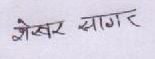 शेखर सागर